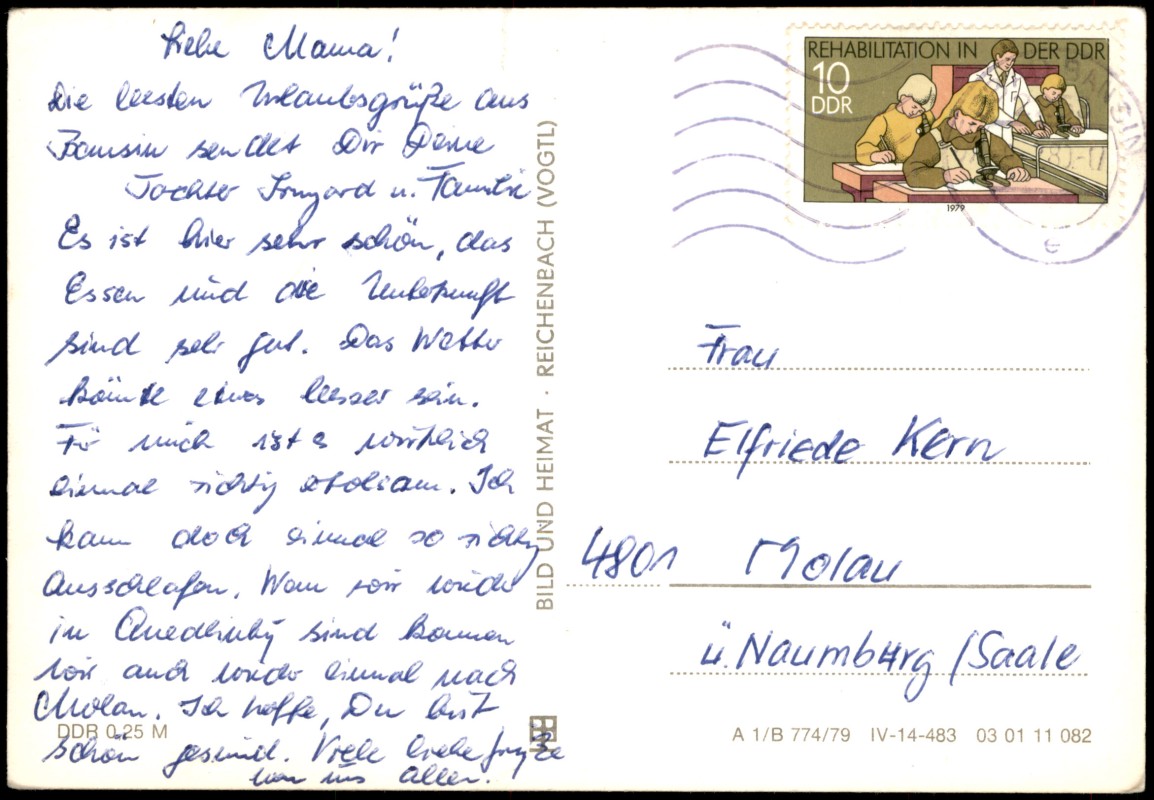 Liebe Mama!
Die besten Urlaubsgrüße aus
Bansin sendet Dir Deine
Tochter Irmgard u. Familie
Es ist hier sehr schön, das
Essen und die Unterkunft
sind sehr gut. Das Wetter
könnte etwas besser sein.
Für mich ist es wirklich
einmal richtig erholsam. Ich
kann doch einmal so richtig
ausschlafen. Wenn wir wieder
in Quedlinbg sind kommen
wir auch wieder einmal nach
Molau. Ich hoffe, Du bist
schön gesund. Viele liebe Grüße
von uns allen.
DDR 0,25 M
BILD UND HEIMAT · REICHENBACH (VOGTL)
REHABILITATION IN DER DDR
10
DDR
1979
BANSIN
Frau
Elfriede Kern
4801 Molau
ü. Naumburg / Saale
A 1/B 774/79 IV-14-483 03 01 11 082